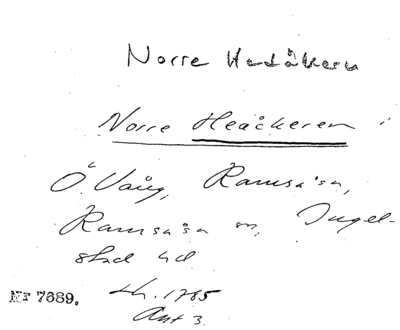 Norre Hedåkern
Norre Heåckeren i
Ö. Vång, Ramsåsa,
Ramsåsa sn, Ingel-
stad hd
Nr 7689. Lh. 1785
Akt 3